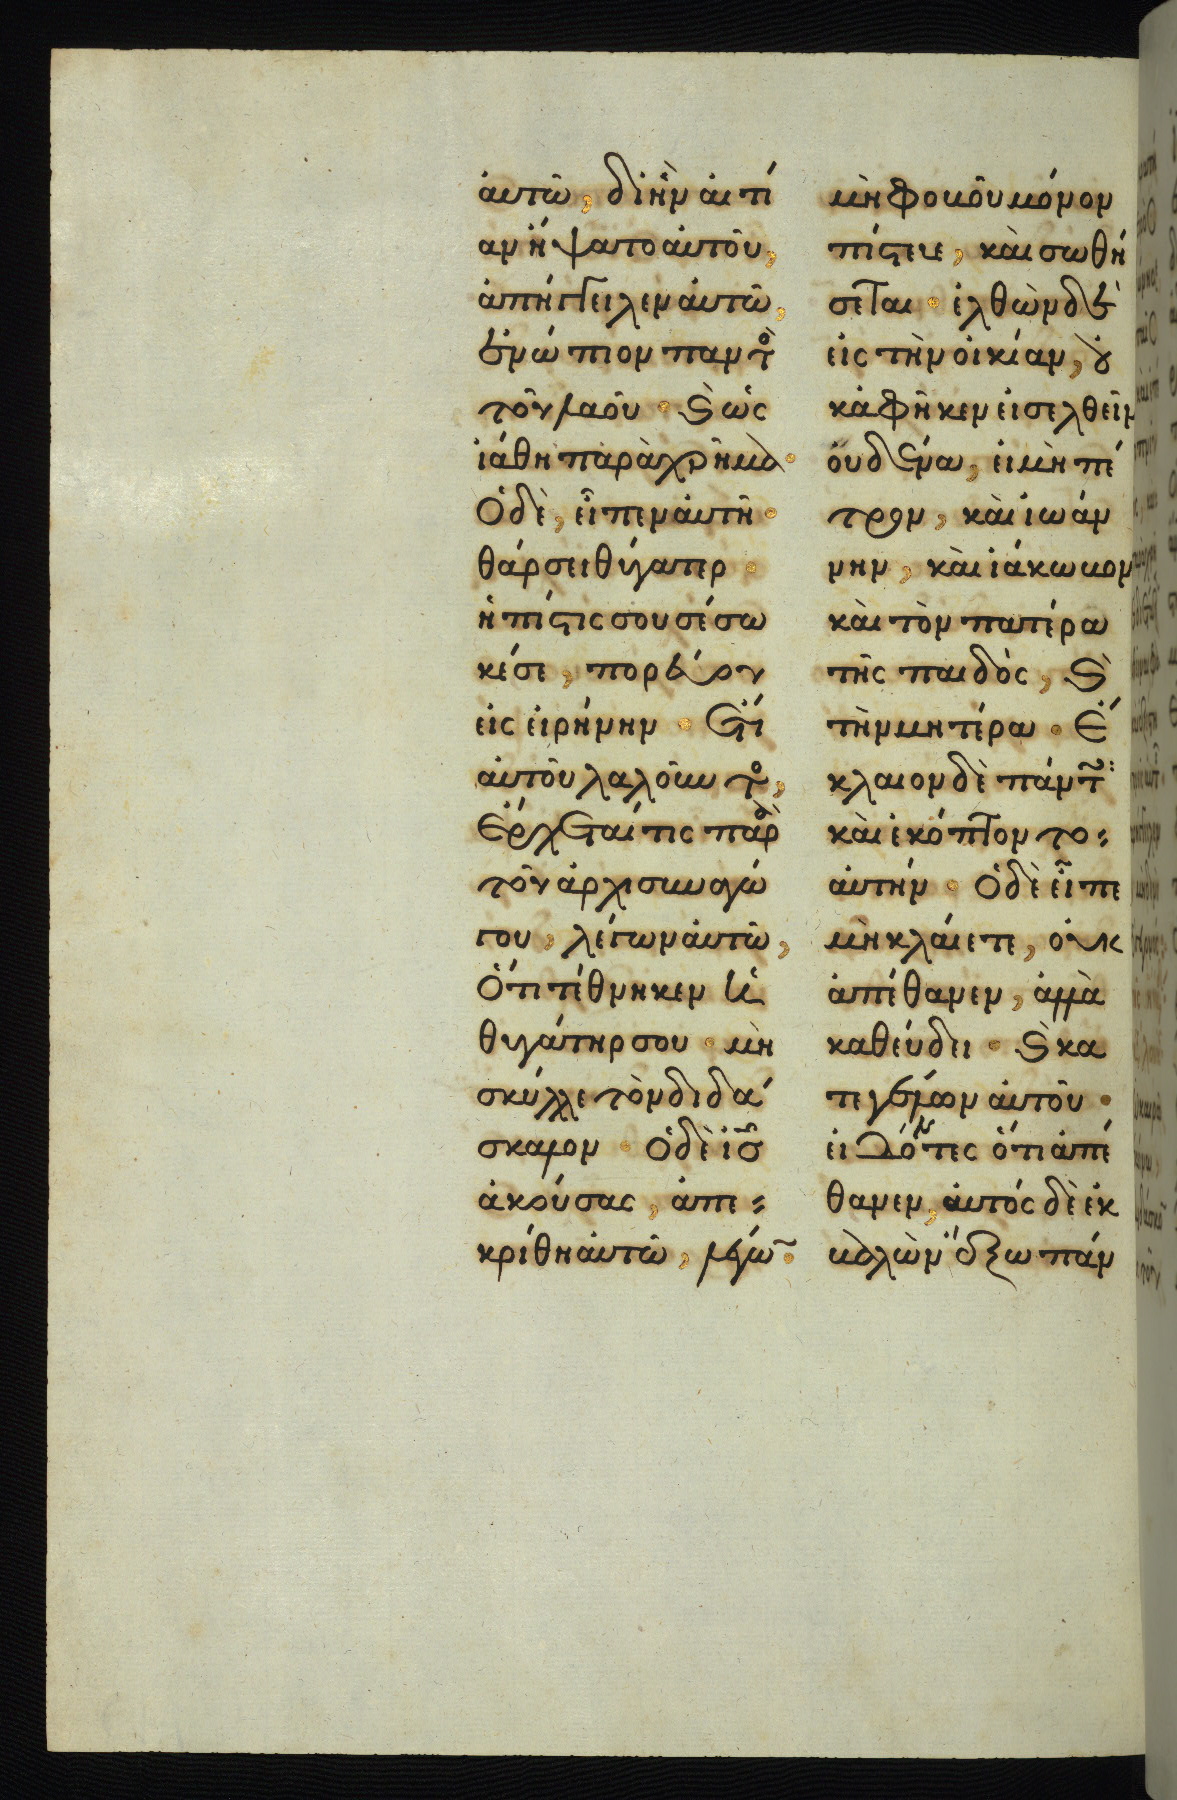 ἀυτῶ, δι ἣν ἀιτί
αν ἥψατο ἀυτοῦ,
ἀπήγγειλεν ἀυτῶ,
ἐνώπιον παντὸ
τοῦ λαοῦ · ϗ ὡς
ἰάθη παραχρῆμα ·
Ὁ δὲ, εἶπεν ἀυτῆ ·
θάρσει θύγατερ ·
ἡ πίϛις σου σέσω
κέ σε, πορεύου
εἰς εἰρήνην · Ἔτι
ἀυτοῦ λαλοῦντο,
ἔρχεταί τις παρὰ
τοῦ ἀρχισυναγώ
γου, λέγων ἀυτῶ,
Ὅτι τέθνηκεν ἡ
θυγάτηρ σου · μὴ
σκύλλε τὸν διδά
σκαλον · Ὁ δὲ ἰς
ἀκούσας, ἀπε=
κρίθη ἀυτῶ, λέγω ·
μὴ φοβοῦ μόνον
πίϛευε, καὶ σωθή
σεται · ἐλθὼν δὲ
εἰς τὴν οἰκίαν, ὀυ
κ ἀφῆκεν εἰσελθεῖν
ὀυδένα, εἰ μὴ πέ
τρον, καὶ ἰωάν
νην, καὶ ἰάκωβον
καὶ τὸν πατέρα
τῆς παιδὸς, ϗ
τὴν μητέρα · Ἔ
κλαιον δὲ πάντ:
καὶ ἐκόπτοντο=
ἀυτήν · Ὁ δὲ εἶπε
μὴ κλαίετε, ὀυκ
ἀπέθανεν, ἀλλὰ
καθεύδει · ϗ κα
τεγέλων ἀυτοῦ ·
εἰδότες ὅτι ἀπέ
θανεν, ἀυτός δὲ ἐκ
βαλὼν ἔξω πάν